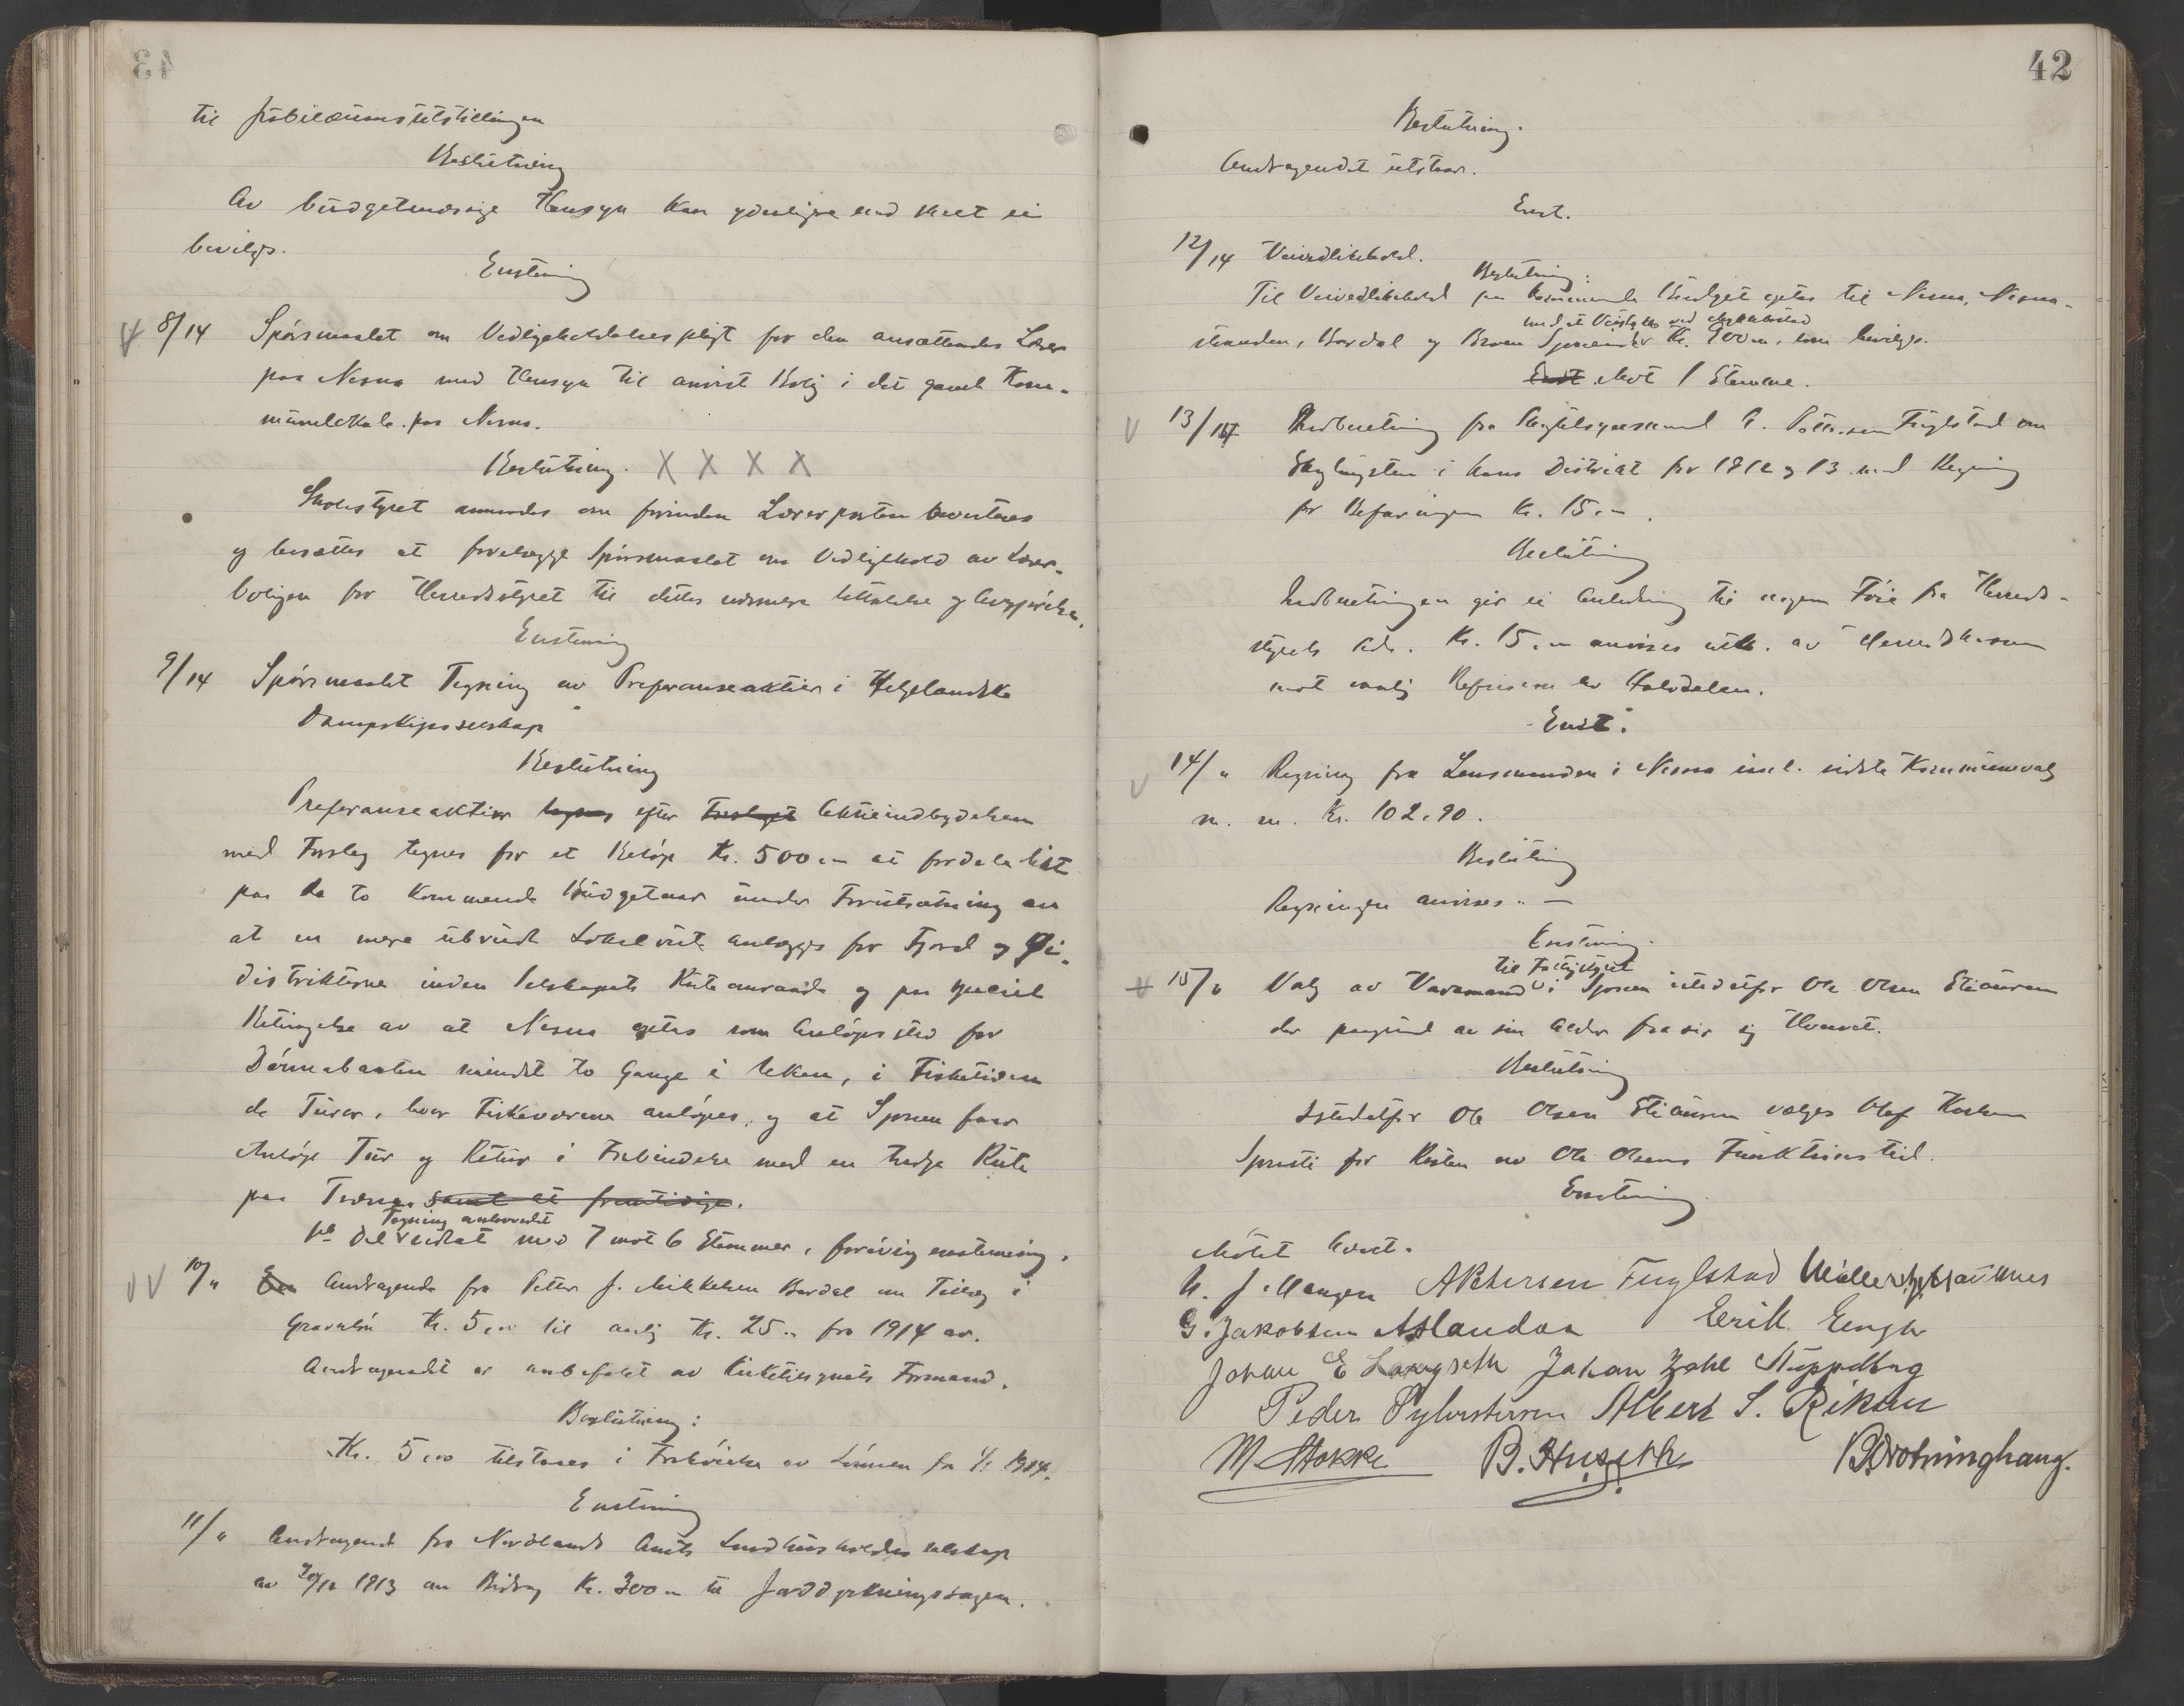 til Jubilæumsutstillingen
Beslutning
Av budgetmæssige Hensyn kan yderligere end skeet ei
bevilges.
Enstemmig
8/14 Spörsmaalet om Vedligeholdelsespligt for den ansættendes Lærer
paa Nesna med Hensyn til anvist Bolig i det gamle Kom-
munelokale paa Nesna.
Beslutning. X X X X
Skolestyret anmodes om forinden Lærerposten
og besættes at forelægge Spörsmaalet om Vedligehold av Lærer-
boligen for Herredsstyret til dettes nærmere Uttalelse og Avgjörelse.
Enstemmig
9/14 Spörsmaalet Tegning av Preferanseaktier i Helgelandske
Dampskipsselskap
Beslutning
Preferanseaktier tegnes efter Forslaget Aktieindbydelsen
med Forslag tegnes for et Belöp Kr. 500,- at fordele likt
paa de to kommende Budgetaar under Forutsætning av
at en mere utvidet Lokalrute anlægges for Fjord og Öi-
distrikterne inden Selskapets Ruteomraade og paa speciel
Betingelse av at Nesna sættes som Anlöpssted for
Dönnesbaaten mindst to Gange i Uken, i Fisketiden
de Turer, hvor Fiskeværene anlöpes, og at Sjonen faar
Anlöp Tur og Retur i Forbindelse med en tredje Rute
paa Tværs samt at fremtidige.
Tegning anbovedet
Del vedtat med 7 mot 6 Stemmer, forövrig enstemmig.
10/" En Andragende fra Petter J. Mikkelsen Bardal om Tillæg i
Graverlön Kr. 5,00 til aarlig Kr. 25,- fra 1914 av.
Andragendet er anbefalet av Kirketilsynets Formand.
Beslutning:
Kr. 5,00 tilstaaes i Forhöielse av Lönnen fra 1/1 1914.
Enstemmig
11/" Andragende fra Nordlands Amts Landhusholdningsselskap
av 30/12 1913 om Bidrag Kr. 300,- til Jorddyrkningssagen.
42
Beslutning.
Andragendet utstaar.
Enst.
12/14 Veivedlikehold.
Beslutning:
Til Veivedlikehold paa kommende Budget opstas til Nesna, Nesna-
med et Veistykke ved
stranden, Bardal og Sjonen Kr. 900,-, som beviliges.
Enst. Mot 1 Stemme.
13/14 Indberetning fra Skogtilsynsmand A. Pettersen Fuglstad om
Skoghugsten i hans Distrikt for 1912 og 13 med Regning
for Befaringen Kr. 15,-.
Beslutning
Indberetningen gir ei Anledning til nogen Föie fra Herreds-
styrets Side. Kr. 15,- anvises utb. av Herredskassen
mot vanlig Refusion av Halvdelen.
Enst.
14/" Regning fra Lensmanden i Nesna indl. sidste Kommunevalg
m. m. Kr. 102,90.
Beslutning
Regningen anvises. —
Enstemmig.
til Fattigstyret
15/" Valg av Varamand i Sjonen istedetfor Ole Olsen Stiauren
der paagrund av sin Alder frasier sig Hvervet.
Beslutning
Istedetfor Ole Olsen Stiauren vælges Olaf
for Resten av Ole Olsens Funktionstid.
Enstemmig
Mötet hævet.
A Pettersen Fuglstad
G. Jakobsen Erik
Johan E Langseth Johan Zahl Stuppelberg
Peder Sylvestersen Albert S. Rikun
M. Stokke B. Huseth B. Dronninghaug.
43